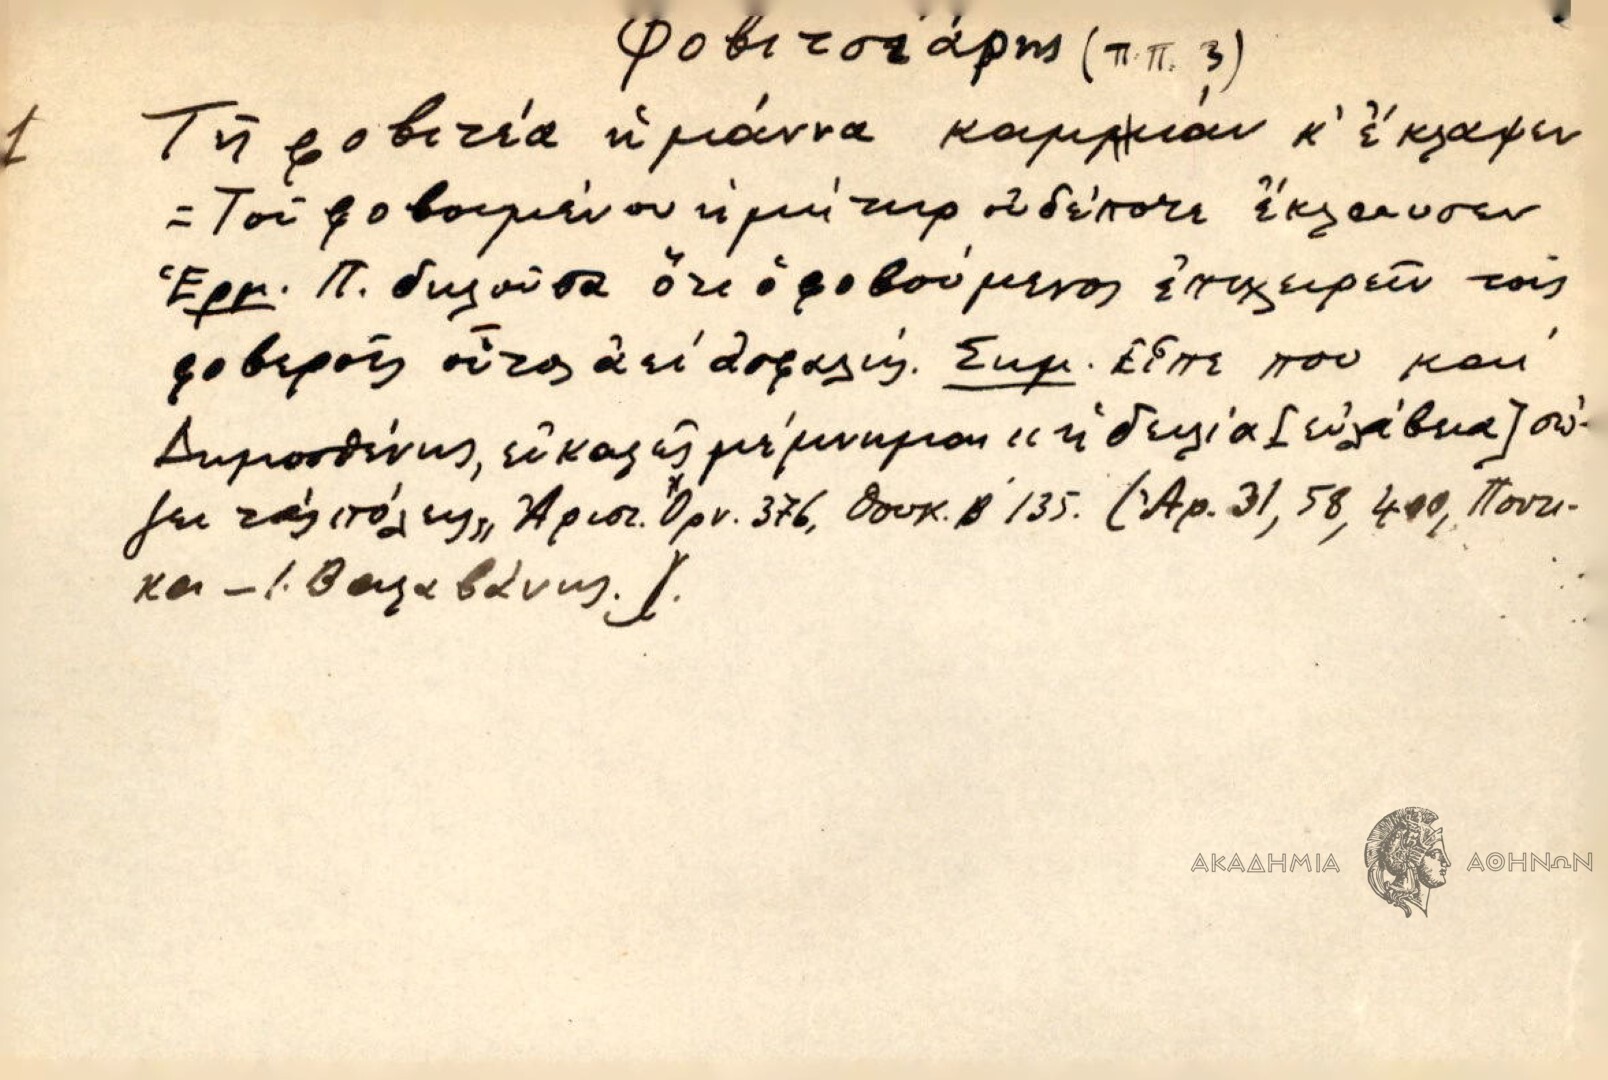 Φοβιτσιάρης (π.π. 3)
1 Τῆ φοβιτέα ἡ μάννα καμμιάν κ' ἔκλαψεν
= Τοῦ φοβουμένου ἡ μήτηρ οὐδέποτε ἔκλαυσεν
Ἑρμ. Π. δηλοῦσα ὅτι ὁ φοβούμενος ἐπιχειρεῖν τοῖς
φοβεροῖς οὗτος ἀεί ἀσφαλής. Σημ. Εἶπε που καί
Δημοσθένης, εἰ καλῶς μέμνημαι "ἡ δειλία [εὐλάβεια] σώ-
ζει τάς πόλεις" Ἀριστ. Ὀρν. 376, Θουκ. Β 135. (Ἀρ. 31, 58, 400, Ποντι-
κα – Ι. Βαλαβάνης.).
ΑΚΑΔΗΜΙΑ ΑΘΗΝΩΝ